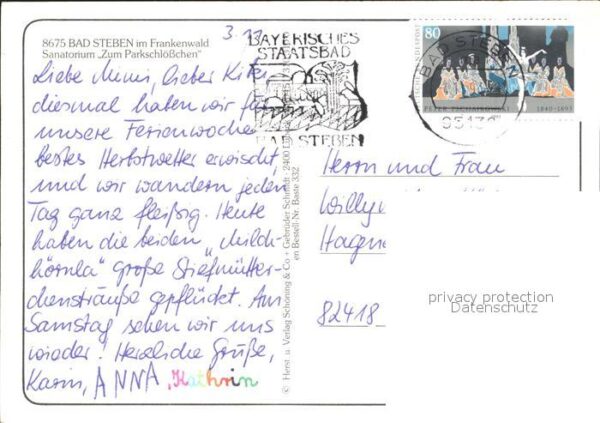 8675 BAD STEBEN im Frankenwald
Sanatorium „Zum Parkschlößchen"
3.11
Liebe Mimi, lieber
diesmal haben wir für
unsere Ferienwoche
bestes Herbstwetter erwischt,
und wir wandern jeden
Tag ganz fleißig. Heute
haben die beiden „Milch-
hörnla" große Stiefmütter-
chensträuße gepflückt. Am
Samstag sehen wir uns
wieder! Herzliche Grüße,
Karin, ANNA, Kathrin
© Herst. u. Verlag Schöning & Co + Gebrüder Schmidt · 2400
Bestell-Nr. Baste 332
BAYERISCHES
STAATSBAD
BAD STEBEN
80
PETER TSCHAIKOWSKY 1840-1893
BAD STEBEN
95138
Herrn und Frau
Willy
Hagen
82418
privacy protection
Datenschutz